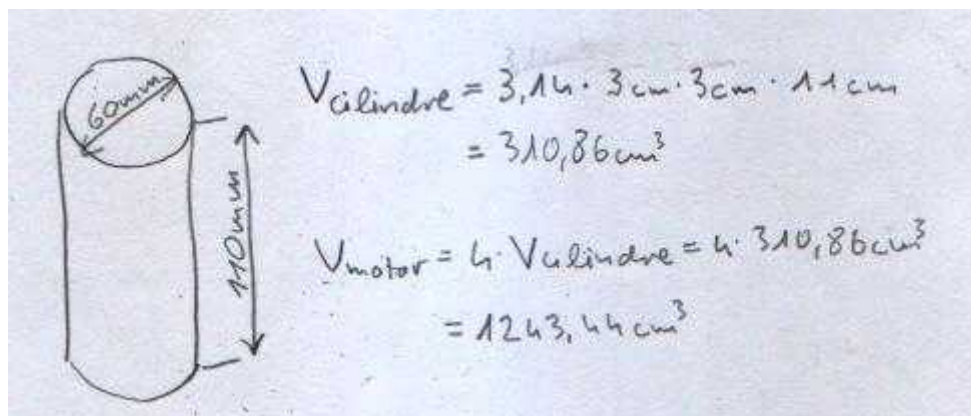 60mm
110mm
Vcilindre = 3,14 · 3cm · 3cm · 11cm
= 310,86cm³
Vmotor = 4 · Vcilindre = 4 · 310,86cm³
= 1243,44cm³